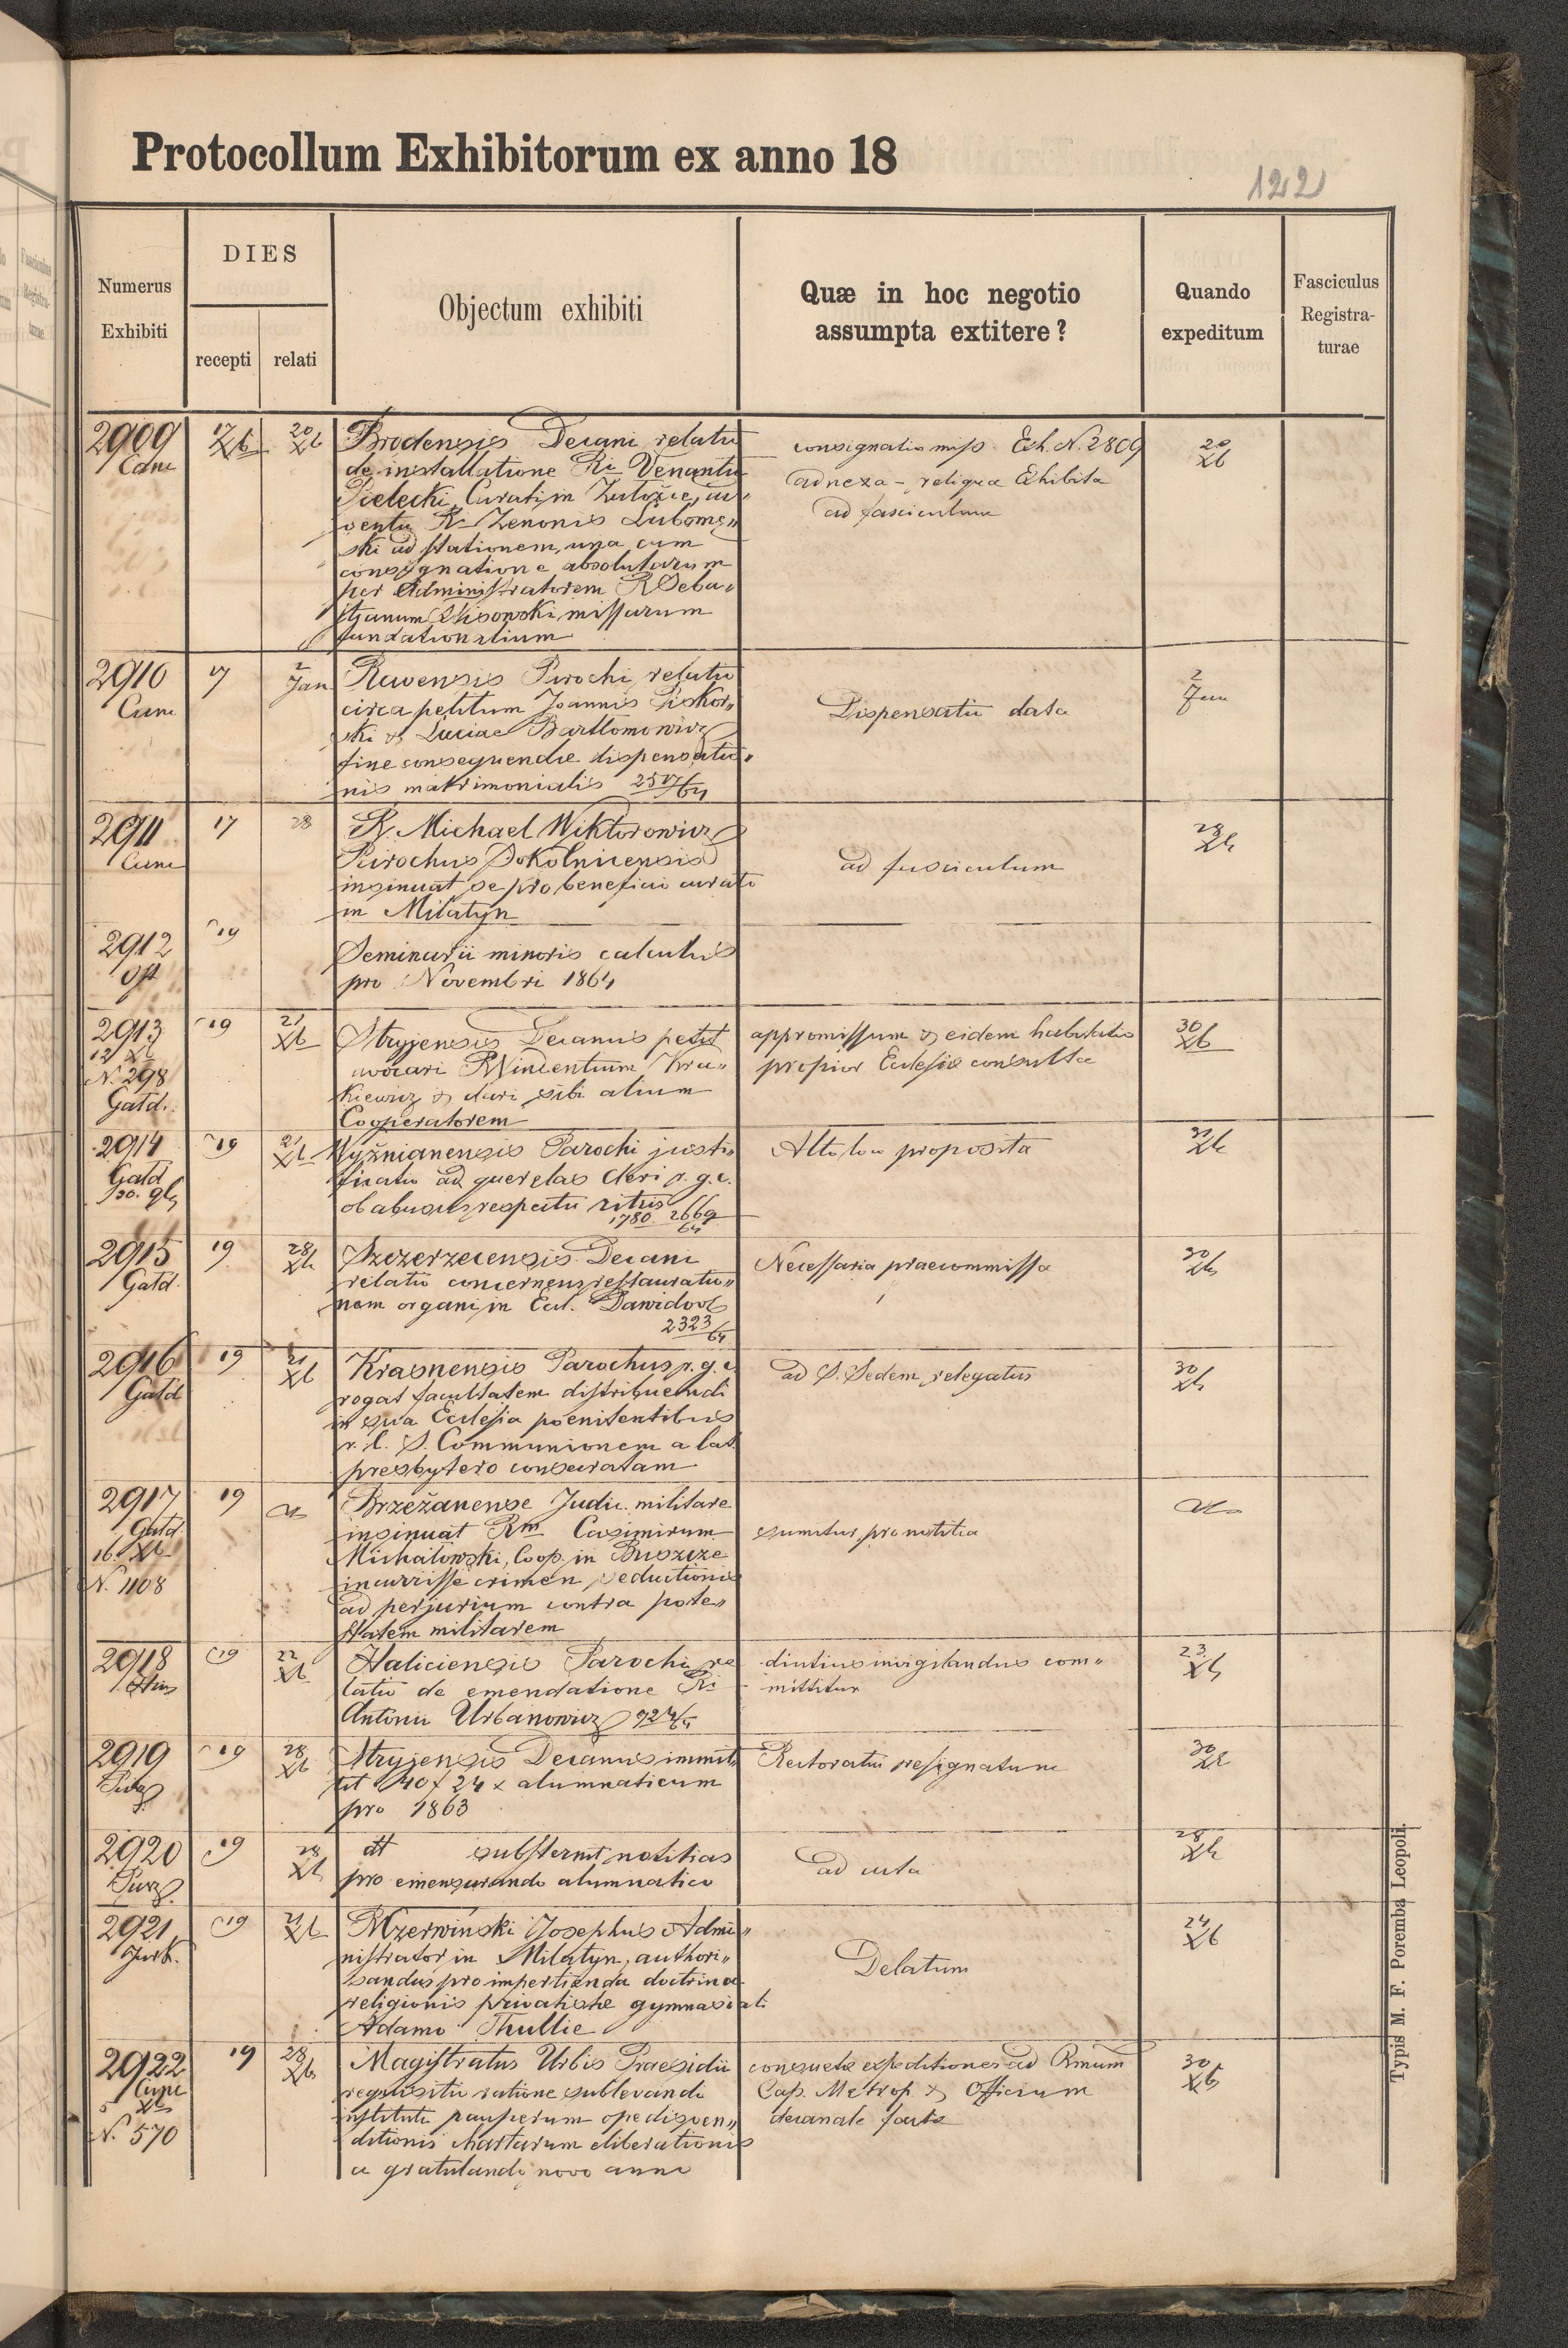 Protocollum Exhibitorum ex anno 18
122
Numerus
Exhibiti
DIES
recepti
relati
Objectum exhibiti
Quæ in hoc negotio
assumpta extitere?
Quando
expeditum
Fasciculus
Registra-
turae
2909
17
Xb
20
Xb
Brodensis Decani relatio
de installatione Ri Venantii
Pielecki, Curati in Załoźce, ad„
ventu R. Zenonis Lubomę„
ski ad stationem, una cum
consignatione absolutarum
per Administratorem R Seba„
stjanum Lisowski missarum
fundationalium
consignatio miss. Exh. N. 2809
adnexa - reliqua Exhibita
ad fasciculum
20
Xb
2910
17
2
Jan
Ruvensis Parochi relatio
circa petitum Joannis Piskor„
ski & Luciae Bartłomowicz
fine consequendae dispensatio„
nis matrimonialis
Dispensatio data
2
Jan
2911
17
28
R. Michael Wiktorowicz
Parochus Sokolnicensis
insinuat se pro beneficio curato
in Milatyn
ad fasciculum
28
Xb
2912
19
Seminarii minoris calculus
pro Novembri 1864
2913
12 Xb
N. 298
Gatd.
19
21
Xb
Stryjensis Decanus petit
avocari R Vincentium Kru„
kiewicz & dari sibi alium
Cooperatorem
appromissum & eidem habitatio
propior Eclesiae consulta
30
Xb
2914
Gatd
19
21
Xb
Wyżnianensis Parochi justi„
ficatio ad querelas Cleri r. g. c.
ob abusus respectu ritus
1780 2669
64
Alto loco proposita
Xb
2915
Gatd.
19
28
Xb
Szczerzecensis Decani
relatio concernens restauratio„
nem organi in Eccl. Dawidow
2323
64
Necessaria praecommissa
30
Xb
2916
Gatd
19
21
Xb
Krasnensis Parochus r. g. c.
rogat facultatem distribuendi
in sua Eclesia poenitentibus
r. l. S. Communionem a lat.
presbytero consecratam
ad S. Sedem relegatus
30
Xb
2917
Gatd.
16. Xb
N. 1108
19
Brzeżanense Judic. militare
insinuat Rm Casimirum
Michałowski, Coop. in Buszcze
incurrisse crimen seductionis
ad perjurium contra pote„
statem militarem
sumitur pro notitia
2918
19
22
Xb
Haliciensis Parochi re
latio de emendatione Ri
Antonii Urbanowicz
diutius invigilandus com„
mittitur
23
Xb
2919
19
28
Xb
Stryjensis Decanus immit„
tit 40 f 24 x alumnaticum
pro 1863
Rectoratui resignatum
30
Xb
2920
19
28
Xb
dtt substernit notitias
pro emensurando alumnatico
ad acta
28
Xb
2921
Jurk.
19
21
Xb
R Mzerwiński Josephus Admi„
nistrator in Milatyn, authori„
sandus pro impertienda doctrina
religionis privatistae gymnasiali
Adamo Thullie
Delatum
24
Xb
2922
5 Xb
N. 570
19
28
Xb
Magistratus Urbis Praesidii
requisitio ratione sublevandi
instituti pauperum ope dispen„
ditionis chartarum eliberationis
a gratulando novo anno
consuetae expeditiones ad Rmum
Cap. Metrop. & Officium
decanale factae
30
Xb
Typis M. F. Poremba Leopoli.